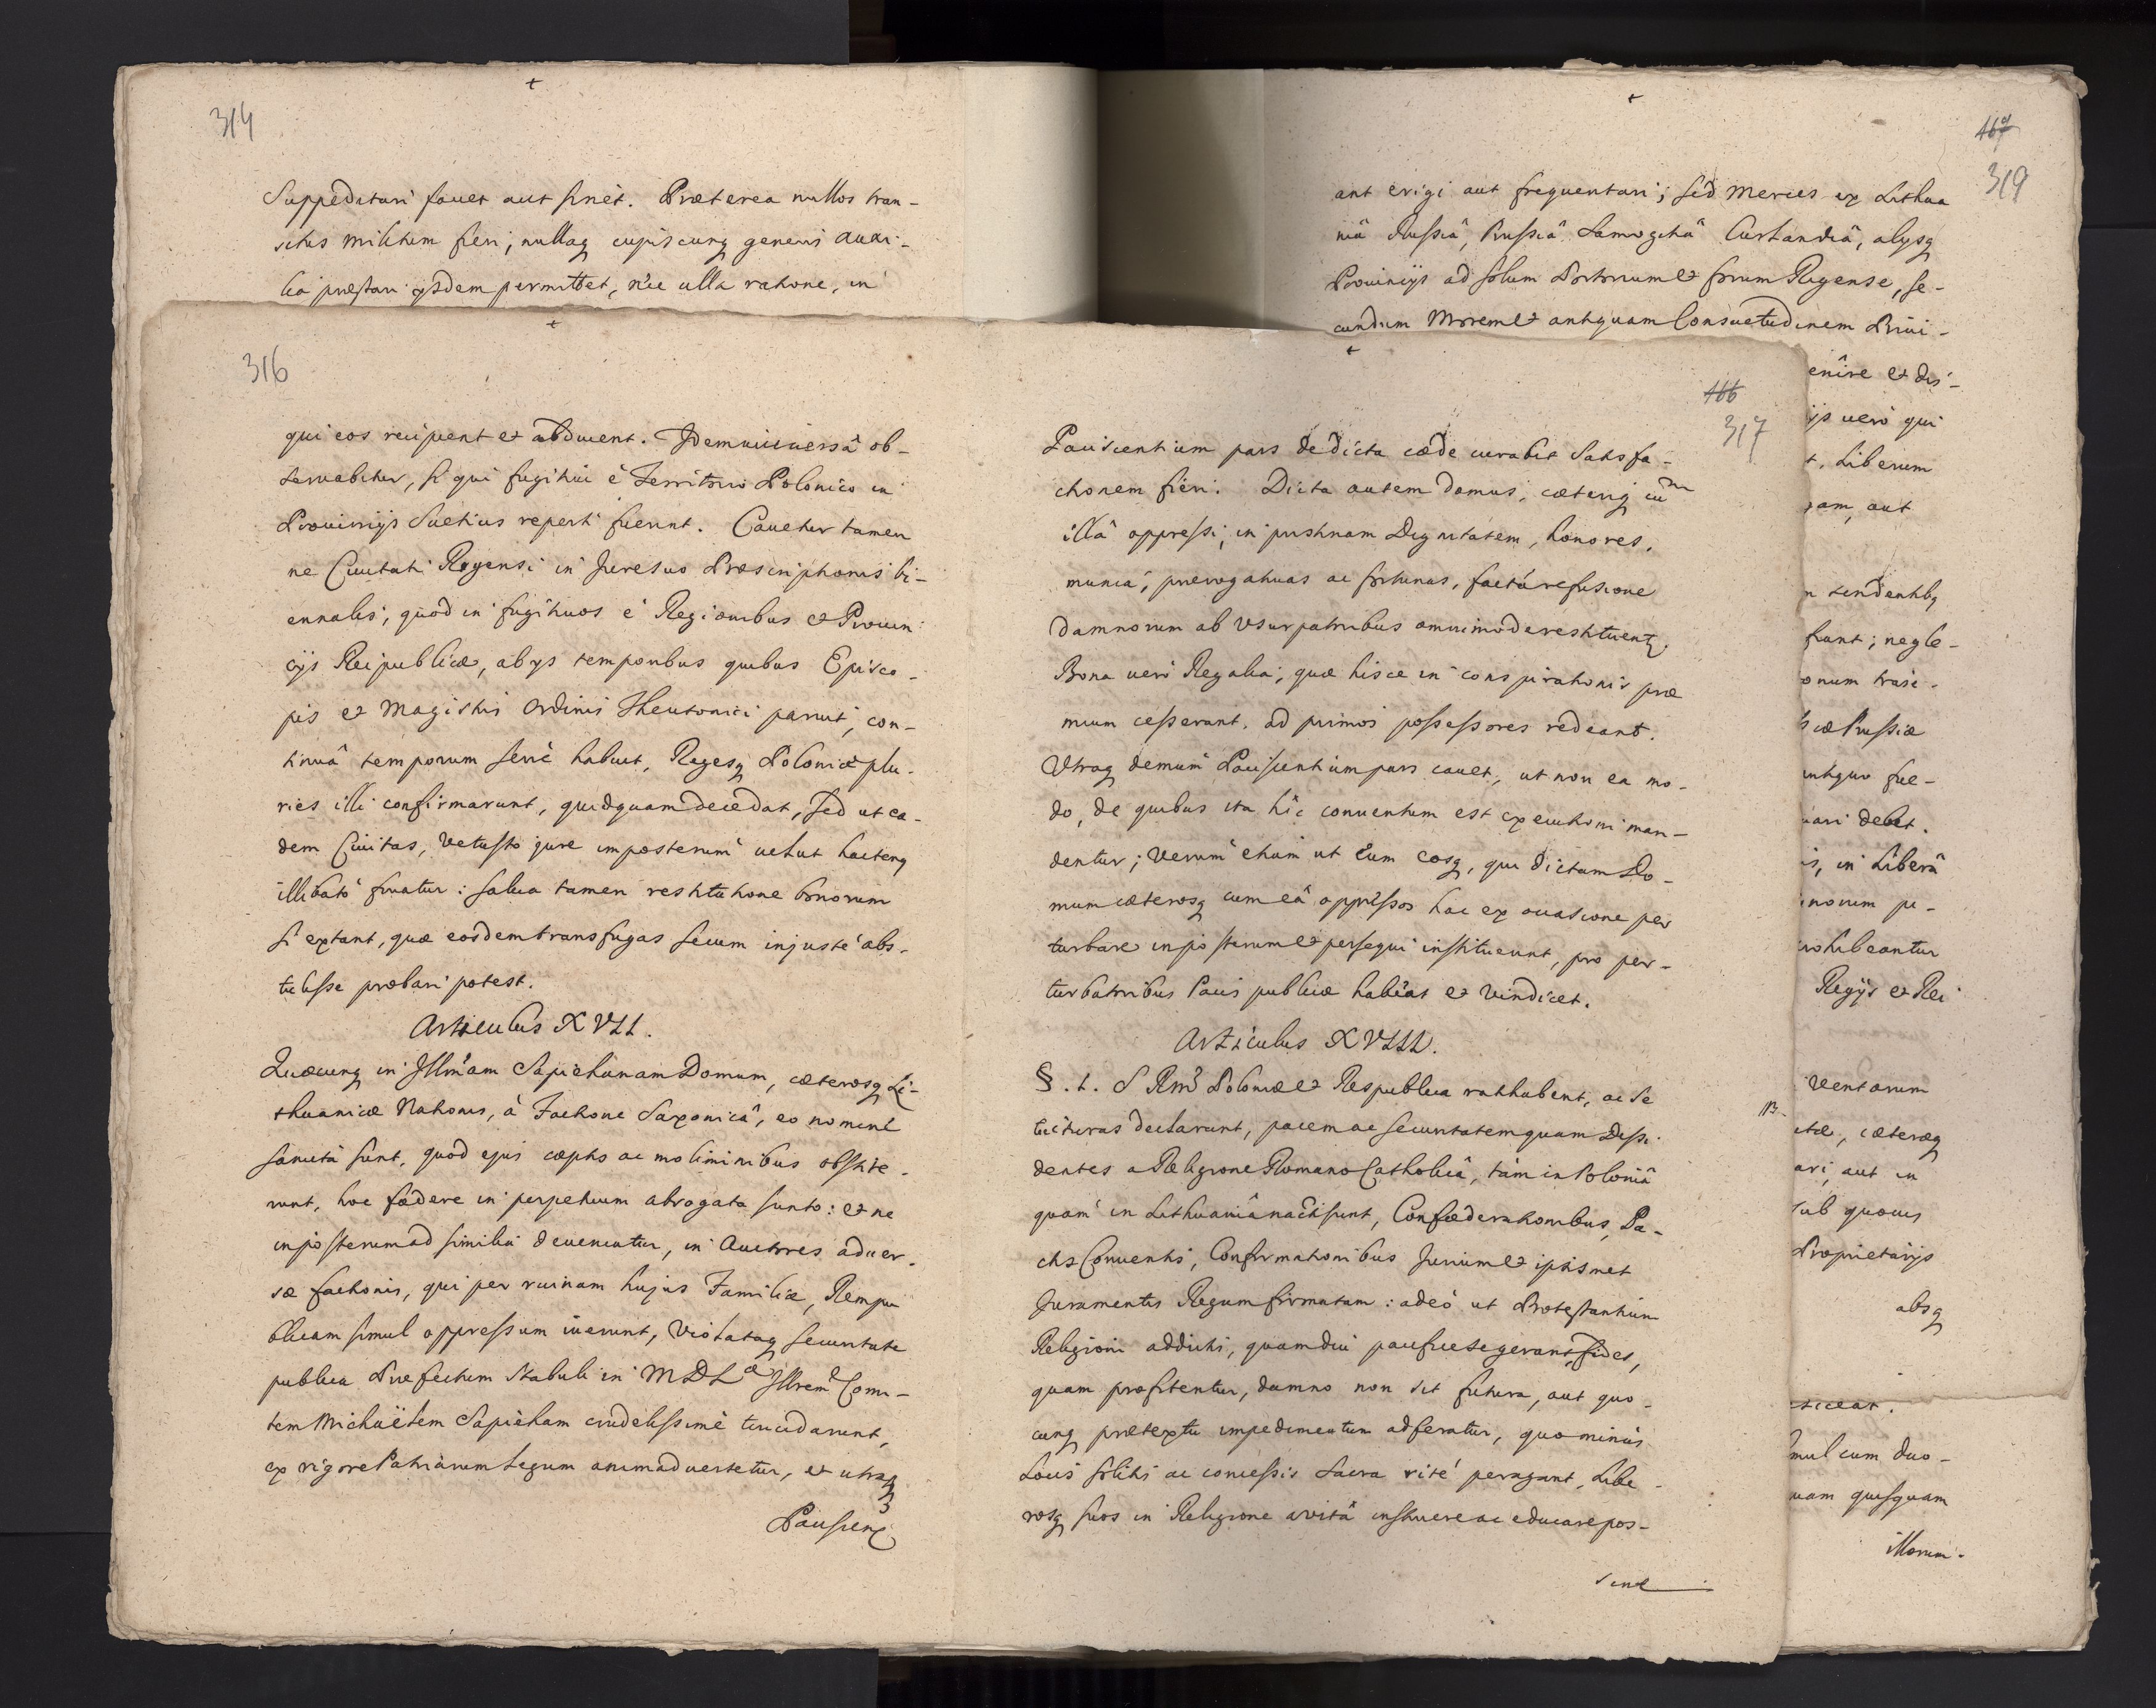 314
Suppeditari favet aut sinet. Præterea nullos tran-
situs militum fieri, nullaq cujuscunq generis auxi-
lia præstari ijsdem permittet, nec ulla ratione, in
316
qui eos recipient et abducent. Idem vice versâ ob-
servabitur, si qui fugitivi è Territorio Polonico in
Provincijs Sueticis reperti fuerint. Cavetur tamen
ne Civitati Rigensi in Jure suo Præscriptionis bi-
ennalis, quod in fugitivos è Regionibus et Provin
cijs Reipublicæ, ab ijs temporibus quibus Episco-
pis et Magistris Ordinis Theutonici paruit, con-
tinuâ temporum serie habuit, Regesq Poloniæ plu-
ries illi confirmarunt, quidquam decedat, sed ut ea-
dem Civitas, vetusto jure imposterum velut hactenq
illibato fruatur: salva tamen restitutione bonorum
si extant, quæ eosdem transfugas secum injuste abs-
tulisse probari potest.
Articulus XVII.
Quæcunq in Illmam Sapiehanam Domum, cæterosq Li-
thuanicæ Nationis, à Factione Saxonicâ, eo nomine
sancita sunt, quod ejus cæptis ac moliminibus obstite-
runt, hoc fædere in perpetuum abrogata sunto: et ne
inposterum ad similia deveniatur, in Auctores adver-
sæ factionis, qui per ruinam hujus Familiæ, Rempu
blicam simul oppressum iverunt, violataq securitate
publica Præfectum Stabuli in MDL Illrem Comi-
tem Michaëlem Sapieham crudelissimè trucidarunt,
ex rigore Patriarum Legum animadvertetur, et utraq
Paciscenq
166
317
Paciscentium pars de dicta cæde curabit satisfa-
ctionem fieri. Dicta autem domus, cæteriq cum
illâ oppressi, in pristinam Dignitatem, honores,
munia, prerogativas ac fortunas, factâ refusione
damnorum ab Usurpatoribus omnimode restituent.
Bona vero Regalia, quæ hisce in conspirationis præ
mium cesserant, ad primos possessores redeant.
Utraq demum Paciscentium pars cavet, ut non ea mo-
do, de quibus ita hîc conventum est executioni man-
dentur; verum etiam ut eum eosq, qui dictam Do-
mum cæterosq cum eâ oppressos hac ex occasione per
turbare in posterum et persequi instituerint, pro per-
turbatoribus Pacis publicæ habeat et vindicet.
Articulus XVIII.
§. 1. S Rms Poloniæ et Respublica ratihabent, ac se
tuituras declarant, pacem ac securitatem quam Dissi-
dentes a Religione Romano Catholicâ, tàm in Poloniâ
quam in Lithuaniâ nacti sunt, Confæderationibus, Pa-
ctis Conventis, Confirmationibus Jurium et ipsismet
Juramentis Regum firmatam: adeo ut Protestantium
Religioni addicti, quamdiu pacifice se gerant, fides,
quam profitentur, damno non sit futura, aut quo-
cunq prætextu impedimentum adferatur, quo minùs
Locis solitis ac concessis sacra ritè peragant, Libe-
rosq suos in Religione avitâ instruere ac educare pos-
sint
167
319
ant erigi aut frequentari; sed merces ex Lithua
niâ Russiâ, Prussiâ Samogitiâ Curlandiâ, alijsq
Provincijs ad solum Portorium et forum Rigense, se-
cundum Morem et antiquam Consuetudinem Privi-
enire et dis-
ijs vero qui
t, Liberum
am, aut
tendentibq
fiant; negle-
onum traje-
æ Russiæ
antiquo fue-
vari debet.
is, in Liberâ
norum pe-
prohibeantur
Regijs et Rei
Ventorum
NB.
ctæ, cæteræq
ari, aut in
sub quovis
Proprietarijs
absq
mul cum duo-
uam quisquam
illorum-